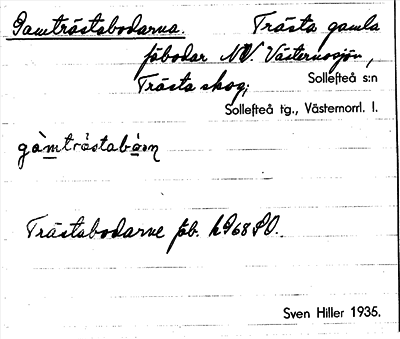 Gamträstabodarna. Trästa gamla
fäbodar NV. Västernosjön,
Trästa skog; Sollefteå s:n
Sollefteå tg., Västernorrl. l.
Trästabodarne fäb.
Sven Hiller 1935.